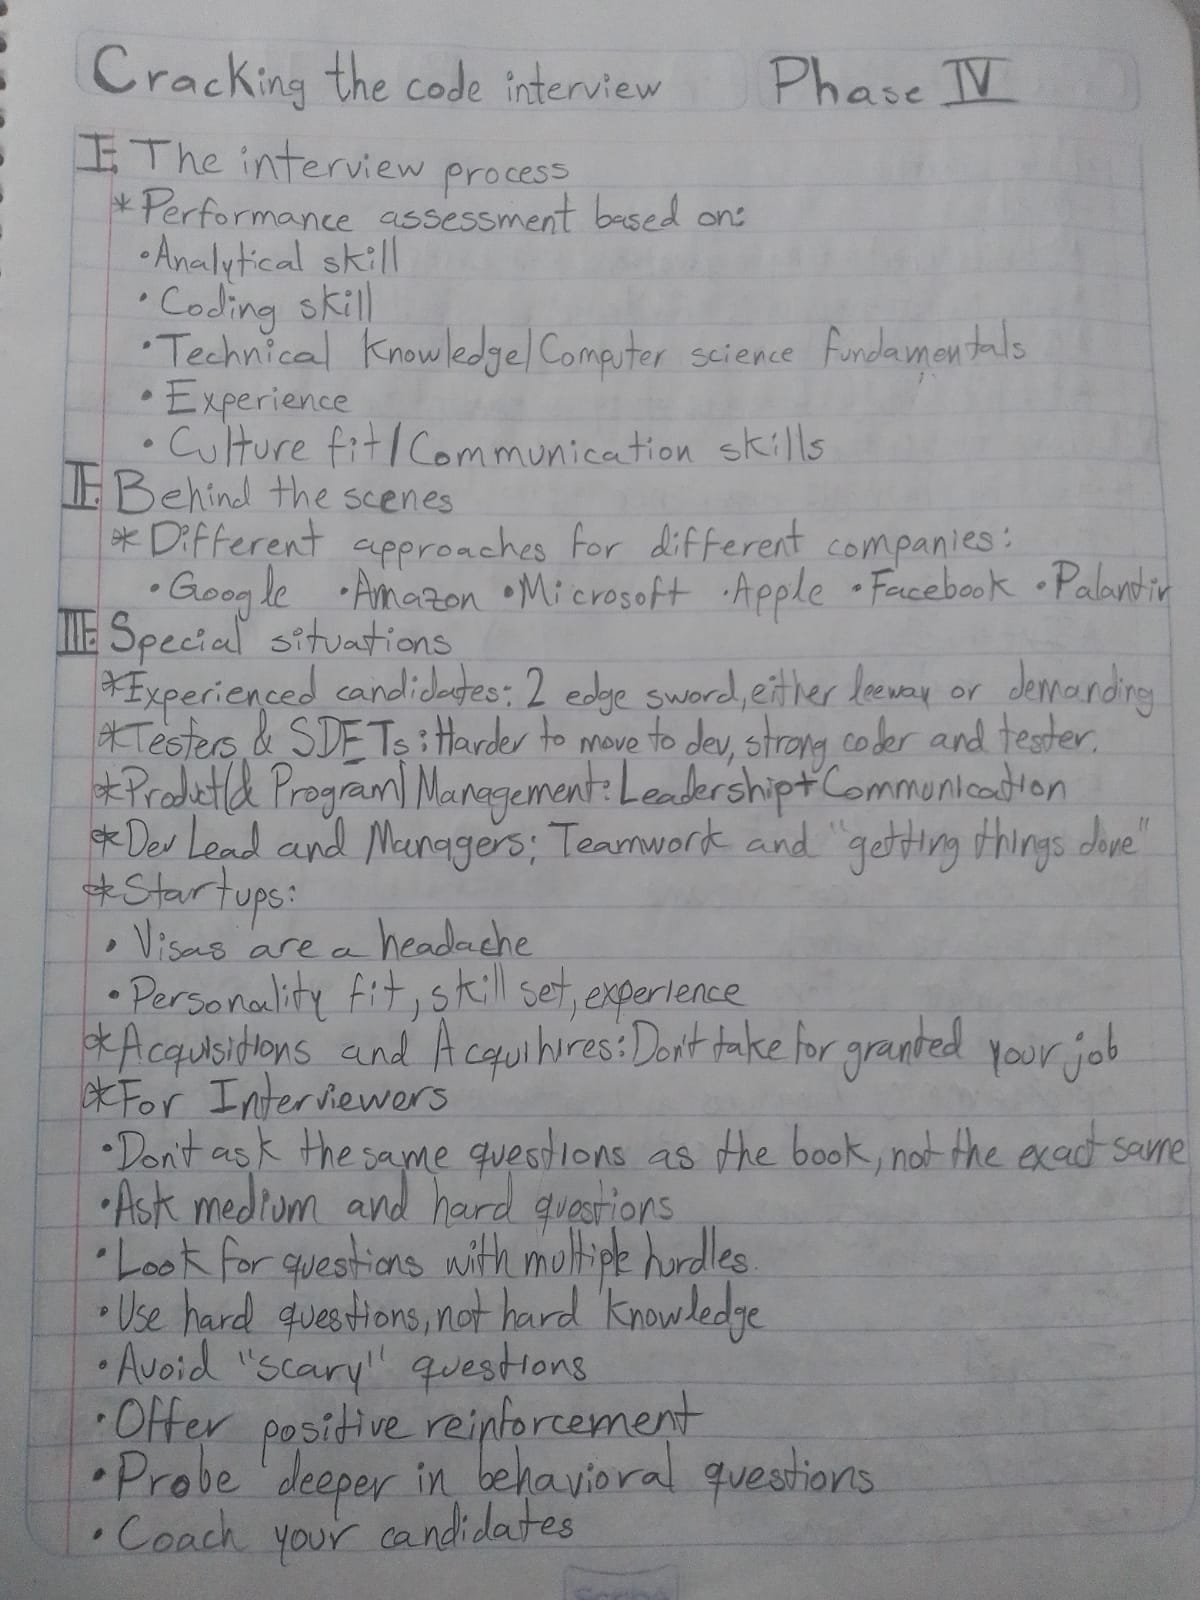 Cracking the code interview Phase IV
I. The interview process
* Performance assessment based on:
• Analytical skill
• Coding skill
• Technical Knowledge/Computer science fundamentals
• Experience
• Culture fit/Communication skills
II. Behind the scenes
* Different approaches for different companies:
• Google • Amazon • Microsoft • Apple • Facebook • Palantir
III. Special situations
* Experienced candidates: 2 edge sword, either leeway or demanding
* Testers & SDETs: Harder to move to dev, strong coder and tester.
* Product(& Program) Management: Leadership + Communication
* Dev Lead and Managers: Teamwork and "getting things done"
* Startups:
• Visas are a headache
• Personality fit, skill set, experience
* Acquisitions and Acquihires: Don't take for granted your job
* For Interviewers
• Don't ask the same questions as the book, not the exact same
• Ask medium and hard questions
• Look for questions with multiple hurdles.
• Use hard questions, not hard knowledge
• Avoid "scary" questions
• Offer positive reinforcement
• Probe deeper in behavioral questions
• Coach your candidates